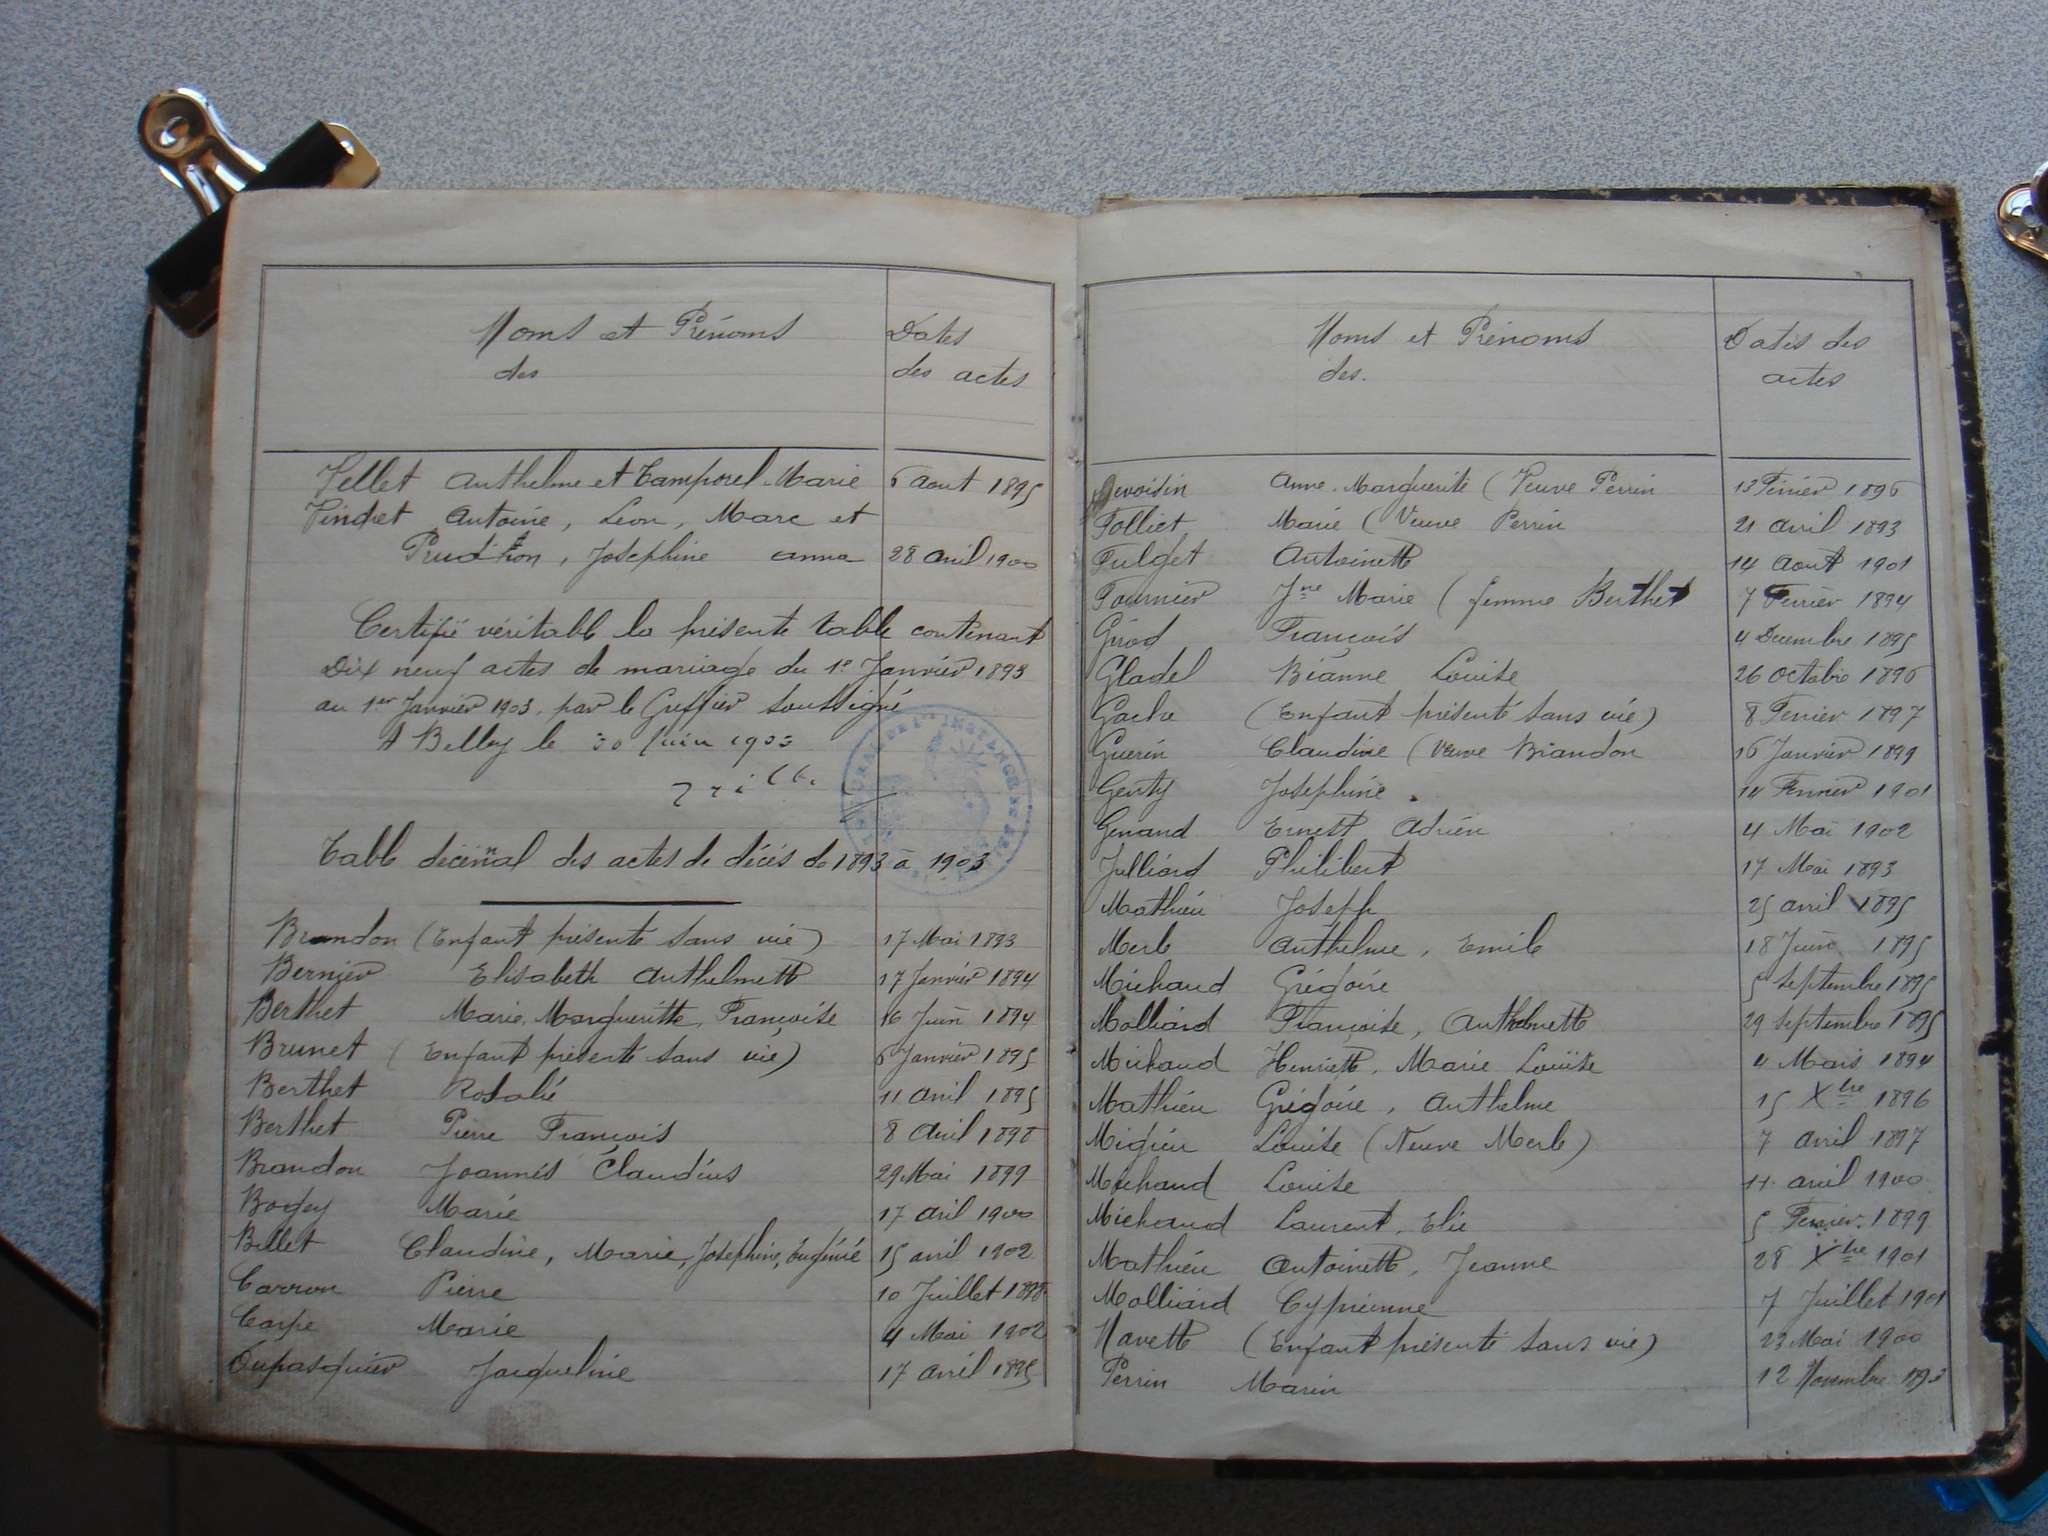 Noms et Prénoms
des
Dates
des actes
Vellet Anthelme et Tamporel Marie 6 Aout 1895
Pindret Antoine, Léon, Marc et
Prudhon, Josephine Anna 28 Avril 1900
Certifié véritable la présente table contenant
Dix neuf actes de mariage du 1er Janvier 1893
au 1er Janvier 1903. par le Greffier soussigné
A Belley le 30 Juin 1903
Table décennal des actes de décès de 1893 à 1903
Brandon (Enfant présenté sans vie) 17 Mai 1893
Bernier Elisabeth Anthelmette 17 Janvier 1894
Berthet Marie, Margueritte, Françoise 16 Juin 1894
Brunet (Enfant présenté sans vie) 6 Janvier 1895
Berthet Rosalie 11 Avril 1895
Berthet Pierre François 8 Avril 1898
Brandon Joannès Claudius 29 Mai 1899
Bogey Marie 17 Avril 1900
Billet Claudine, Marie, Josephine, Eugénie 15 avril 1902
Carron Pierre 10 Juillet 1898
Carpe Marie 4 Mai 1902
Dupasquier Jacqueline 17 Avril 1895
Noms et Prénoms
des.
Dates des
actes
Devoisin Anne-Marguerite (Veuve Perrin 13 Février 1896
Folliet Marie (Veuve Perrin 21 Avril 1893
Fulget Antoinette 14 Aout 1901
Fournier Jne Marie (femme Berthet 7 Février 1894
Girod François 4 Decembre 1895
Gladel Bianne Louise 26 Octobre 1896
Gache (Enfant présenté sans vie) 8 Fevrier 1897
Guerin Claudine (Veuve Brandon 16 Janvier 1899
Genty Josephine 14 Fevrier 1901
Genand Ernest Adrien 4 Mai 1902
Julliard Philibert 17 Mai 1893
Mathieu Joseph 25 avril 1895
Merle Anthelme, Emile 18 Juin 1895
Michaud Grégoire 5 Septembre 1895
Molliard Françoise, Anthelmette 29 Septembre 1895
Michaud Henriette, Marie Louise 4 Mars 1894
Mathieu Grégoire, Anthelme 15 Xbre 1896
Migieu Louise (Veuve Merle) 7 avril 1897
Michaud Louise 11 avril 1900
Michaud Laurent, Elie 5 Fevrier 1899
Mathieu Antoinette, Jeanne 28 Xbre 1901
Molliard Cyprienne 7 Juillet 1901
Navette (Enfant présenté sans vie) 23 Mai 1900
Perrin Marin 12 Novembre 1893